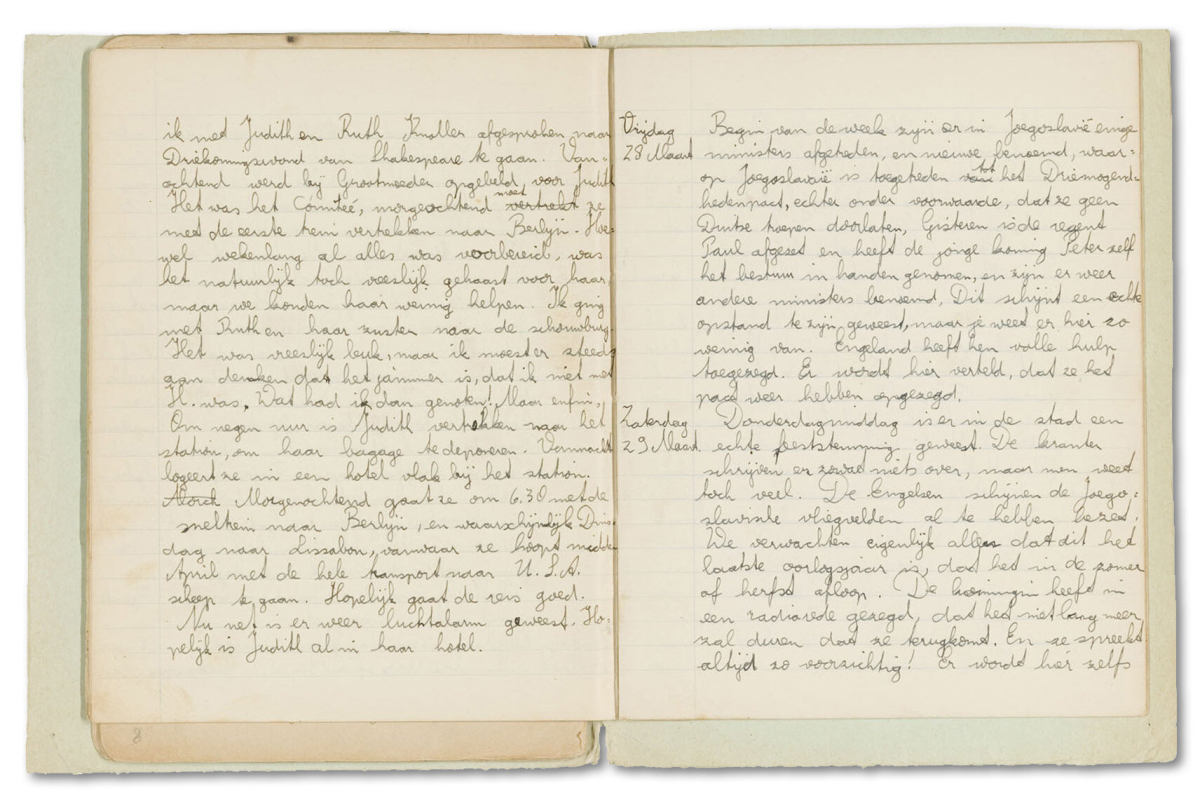 ik met Judith en Ruth Knoller afgesproken naar
Driekoningsavond van Shakespeare te gaan. Van-
ochtend werd bij Grootmoeder opgebeld voor Judith
Het was het Comiteé, morgenochtend moet vertrekt ze
met de eerste trein vertrekken naar Berlijn. Hoe-
wel wekenlang al alles was voorbereid, was
het natuurlijk toch vreeslijk gehaast voor haar,
maar we konden haar weinig helpen. Ik ging
met Ruth en haar zuster naar de schouwburg.
Het was vreeslijk leuk, maar ik moest er steeds
aan denken dat het jammer is, dat ik niet met
H. was. Wat had ik dan genoten! Maar enfin,
Om negen uur is Judith vertrokken naar het
station, om haar bagage te deponeren. Vannacht
logeert ze in een hotel vlak bij het station.
Morch Morgenochtend gaat ze om 6.30 met de
sneltrein naar Berlijn, en waarschijnlijk Dins-
dag naar Lissabon, vanwaar ze hoopt midden
April met de hele transport naar U.S.A.
scheep te gaan. Hopelijk gaat de reis goed.
Nu net is er weer luchtalarm geweest. Ho-
pelijk is Judith al in haar hotel.
Vrijdag
28 Maart
Begin van de week zijn er in Joegoslavië enige
ministers afgetreden, en nieuwe benoemd, waar-
op Joegoslavië is toegetreden van tot het Driemogend-
hedenpact, echter onder voorwaarde, dat ze geen
Duitse troepen doorlaten, Gisteren is de regent
Paul afgezet en heeft de jonge koning Peter zelf
het bestuur in handen genomen, en zijn er weer
andere ministers benoemd. Dit schijnt een echte
opstand te zijn geweest, maar je weet er hier zo
weinig van. Engeland heeft hen volle hulp
toegezegd. Er wordt hier verteld, dat ze het
pact weer hebben opgezegd.
Zaterdag
29 Maart
Donderdagmiddag is er in de stad een
echte feeststemming geweest. De kranten
schrijven er zowat niets over, maar men weet
toch veel. De Engelsen schijnen de Joego-
slavische vliegvelden al te hebben bezet.
We verwachten eigenlijk allen dat dit het
laatste oorlogsjaar is, dat het in de zomer
of herfst afloop. De koningin heeft in
een radiorede gezegd, dat het niet lang meer
zal duren dat ze terugkomt. En ze spreekt
altijd zo voorzichtig! Er wordt hier zelfs
8